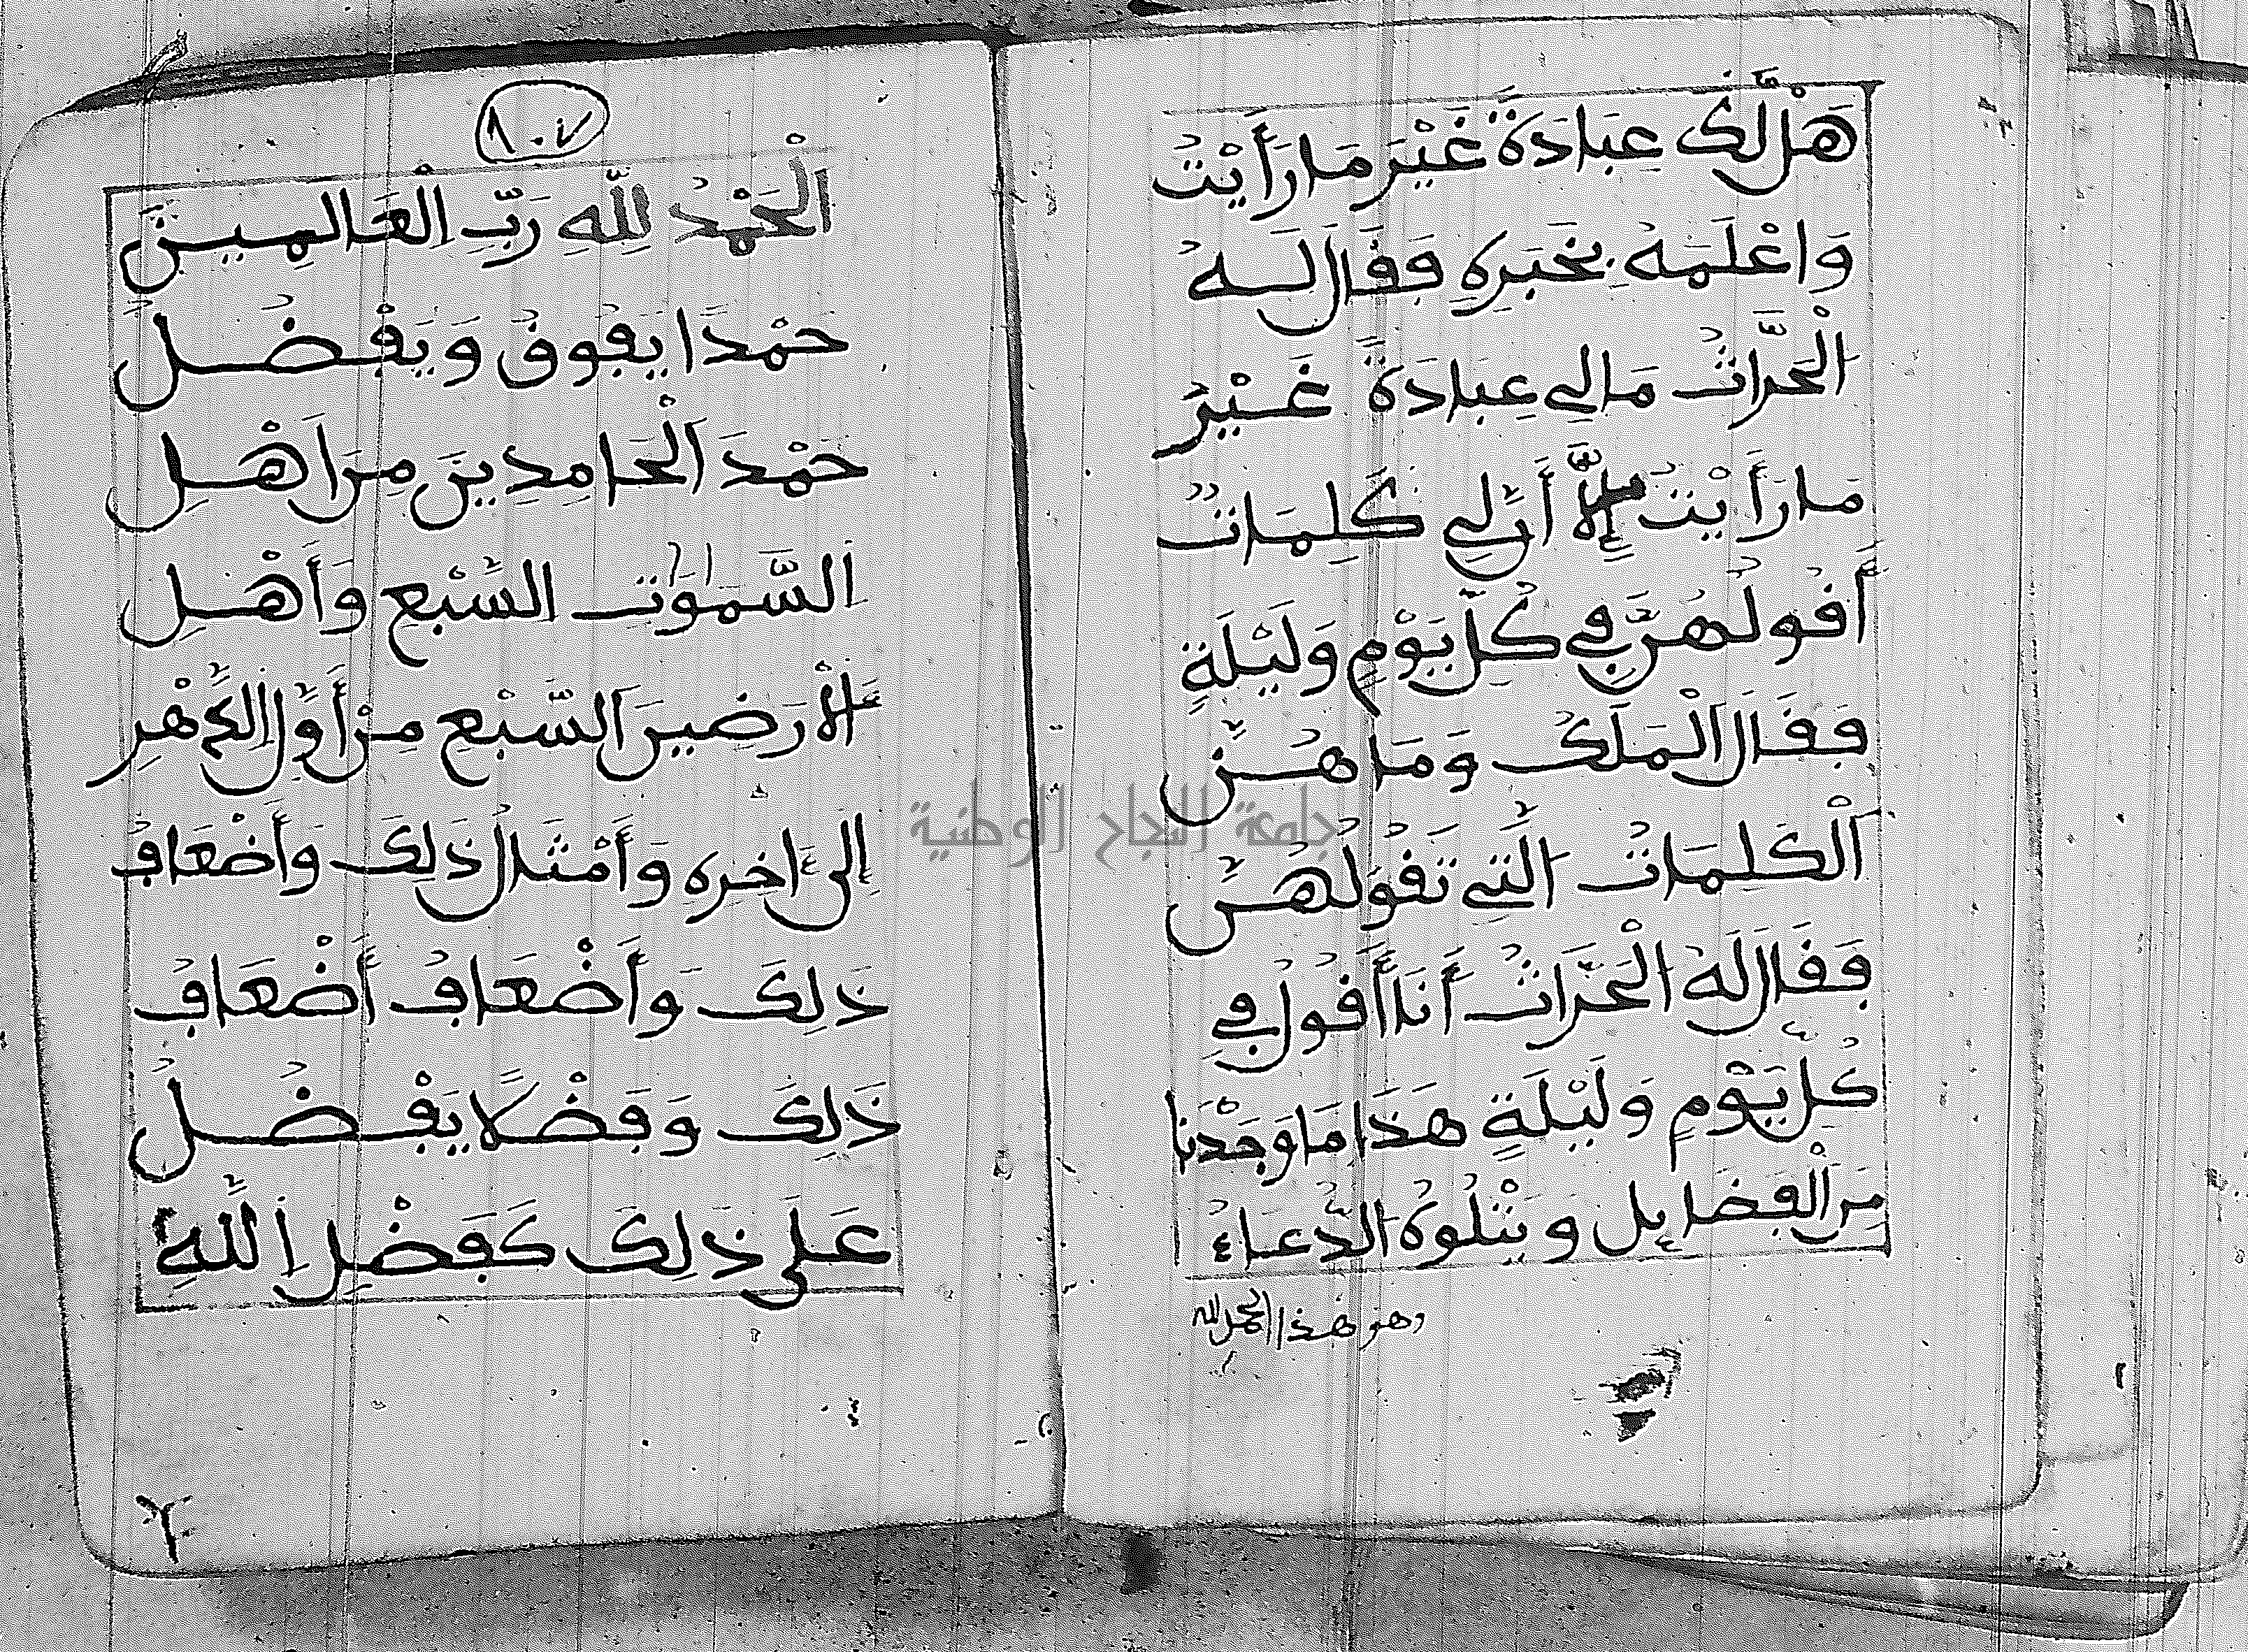 هَلْ لَّكَ عِبَادَةٌ غَيْرَ مَا رَأَيْتُ
وَاعْلَمَهُ بِخَبَرِهِ فَقَالَ لَهُ
الْحَرَّاثُ مَا لِي عِبَادَةٌ غَيْرُ
مَا رَأَيْتَ إِلَّا أَنَّ لِي كَلِمَاتٌ
أَقُولُهُنَّ فِي كُلِّ يَوْمٍ وَلَيْلَةٍ
فَقَالَ الْمَلَكُ وَمَا هُنَّ
الْكَلِمَاتُ الَّتِي تَقُولُهُنَّ
فَقَالَ لَهُ الْحَرَّاثُ أَنَا أَقُولُ فِي
كُلِّ يَوْمٍ وَلَيْلَةٍ هَذَا مَا وَجَدْنَا
مِنَ الْفَضَائِلِ وَيَتْلُوهُ الدُّعَاءُ
وهو هذا الحمد لله
١٠٧
الْحَمْدُ لِلَّهِ رَبِّ الْعَالَمِينَ
حَمْدًا يَفُوقُ وَيَفْضُلُ
حَمْدَ الْحَامِدِينَ مِنَ اَهْلِ
السَّمٰوٰتِ السَّبْعِ وَأَهْلِ
الْأَرَضِينَ السَّبْعِ مِنْ أَوَّلِ الدَّهْرِ
إِلَىٰ ءَاخِرِهِ وَأَمْثَالُ ذَلِكَ وَأَضْعَافُ
ذَلِكَ وَأَضْعَافُ أَضْعَافِ
ذَلِكَ وَفَضْلًا يَفْضُلُ
عَلَى ذَلِكَ كَفَضْلِ اللَّهِ
جامعة النجاح الوطنية